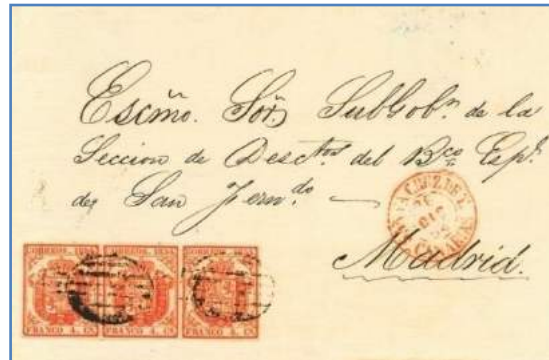 Escmo. Sor. SubGobr. de la
Seccion de Desctos. del Bco Espl.
de San Ferndo.
CRUZ DE T
DIC
CANARIAS
Madrid.
CORREOS 1854 CORREOS 1854 CORREOS 1854
FRANCO 4. CS FRANCO 4. CS FRANCO 4. CS